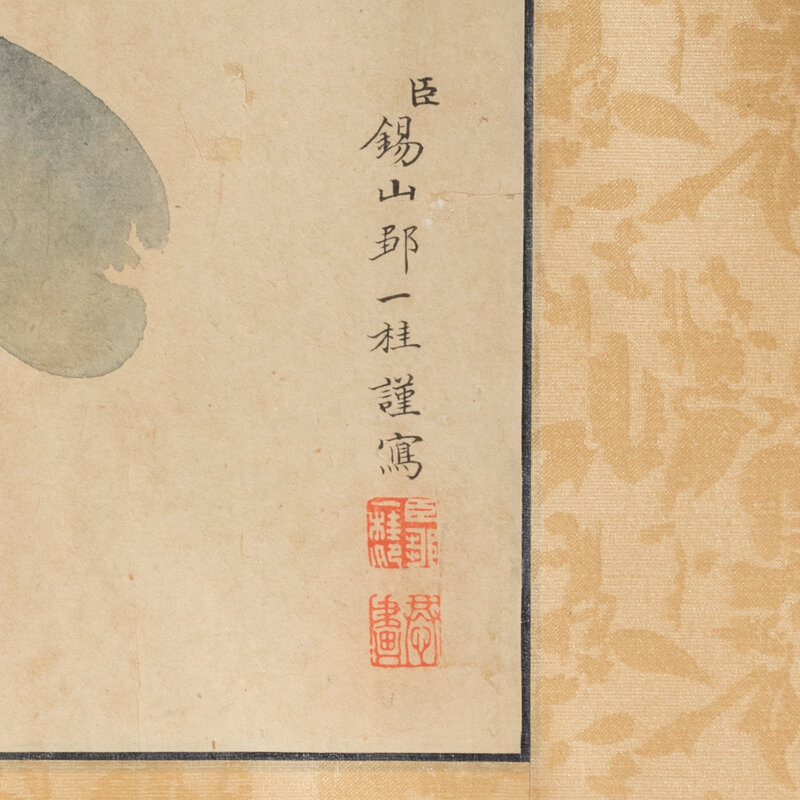 臣錫山鄒一桂謹寫
臣鄒一桂印
恭畫